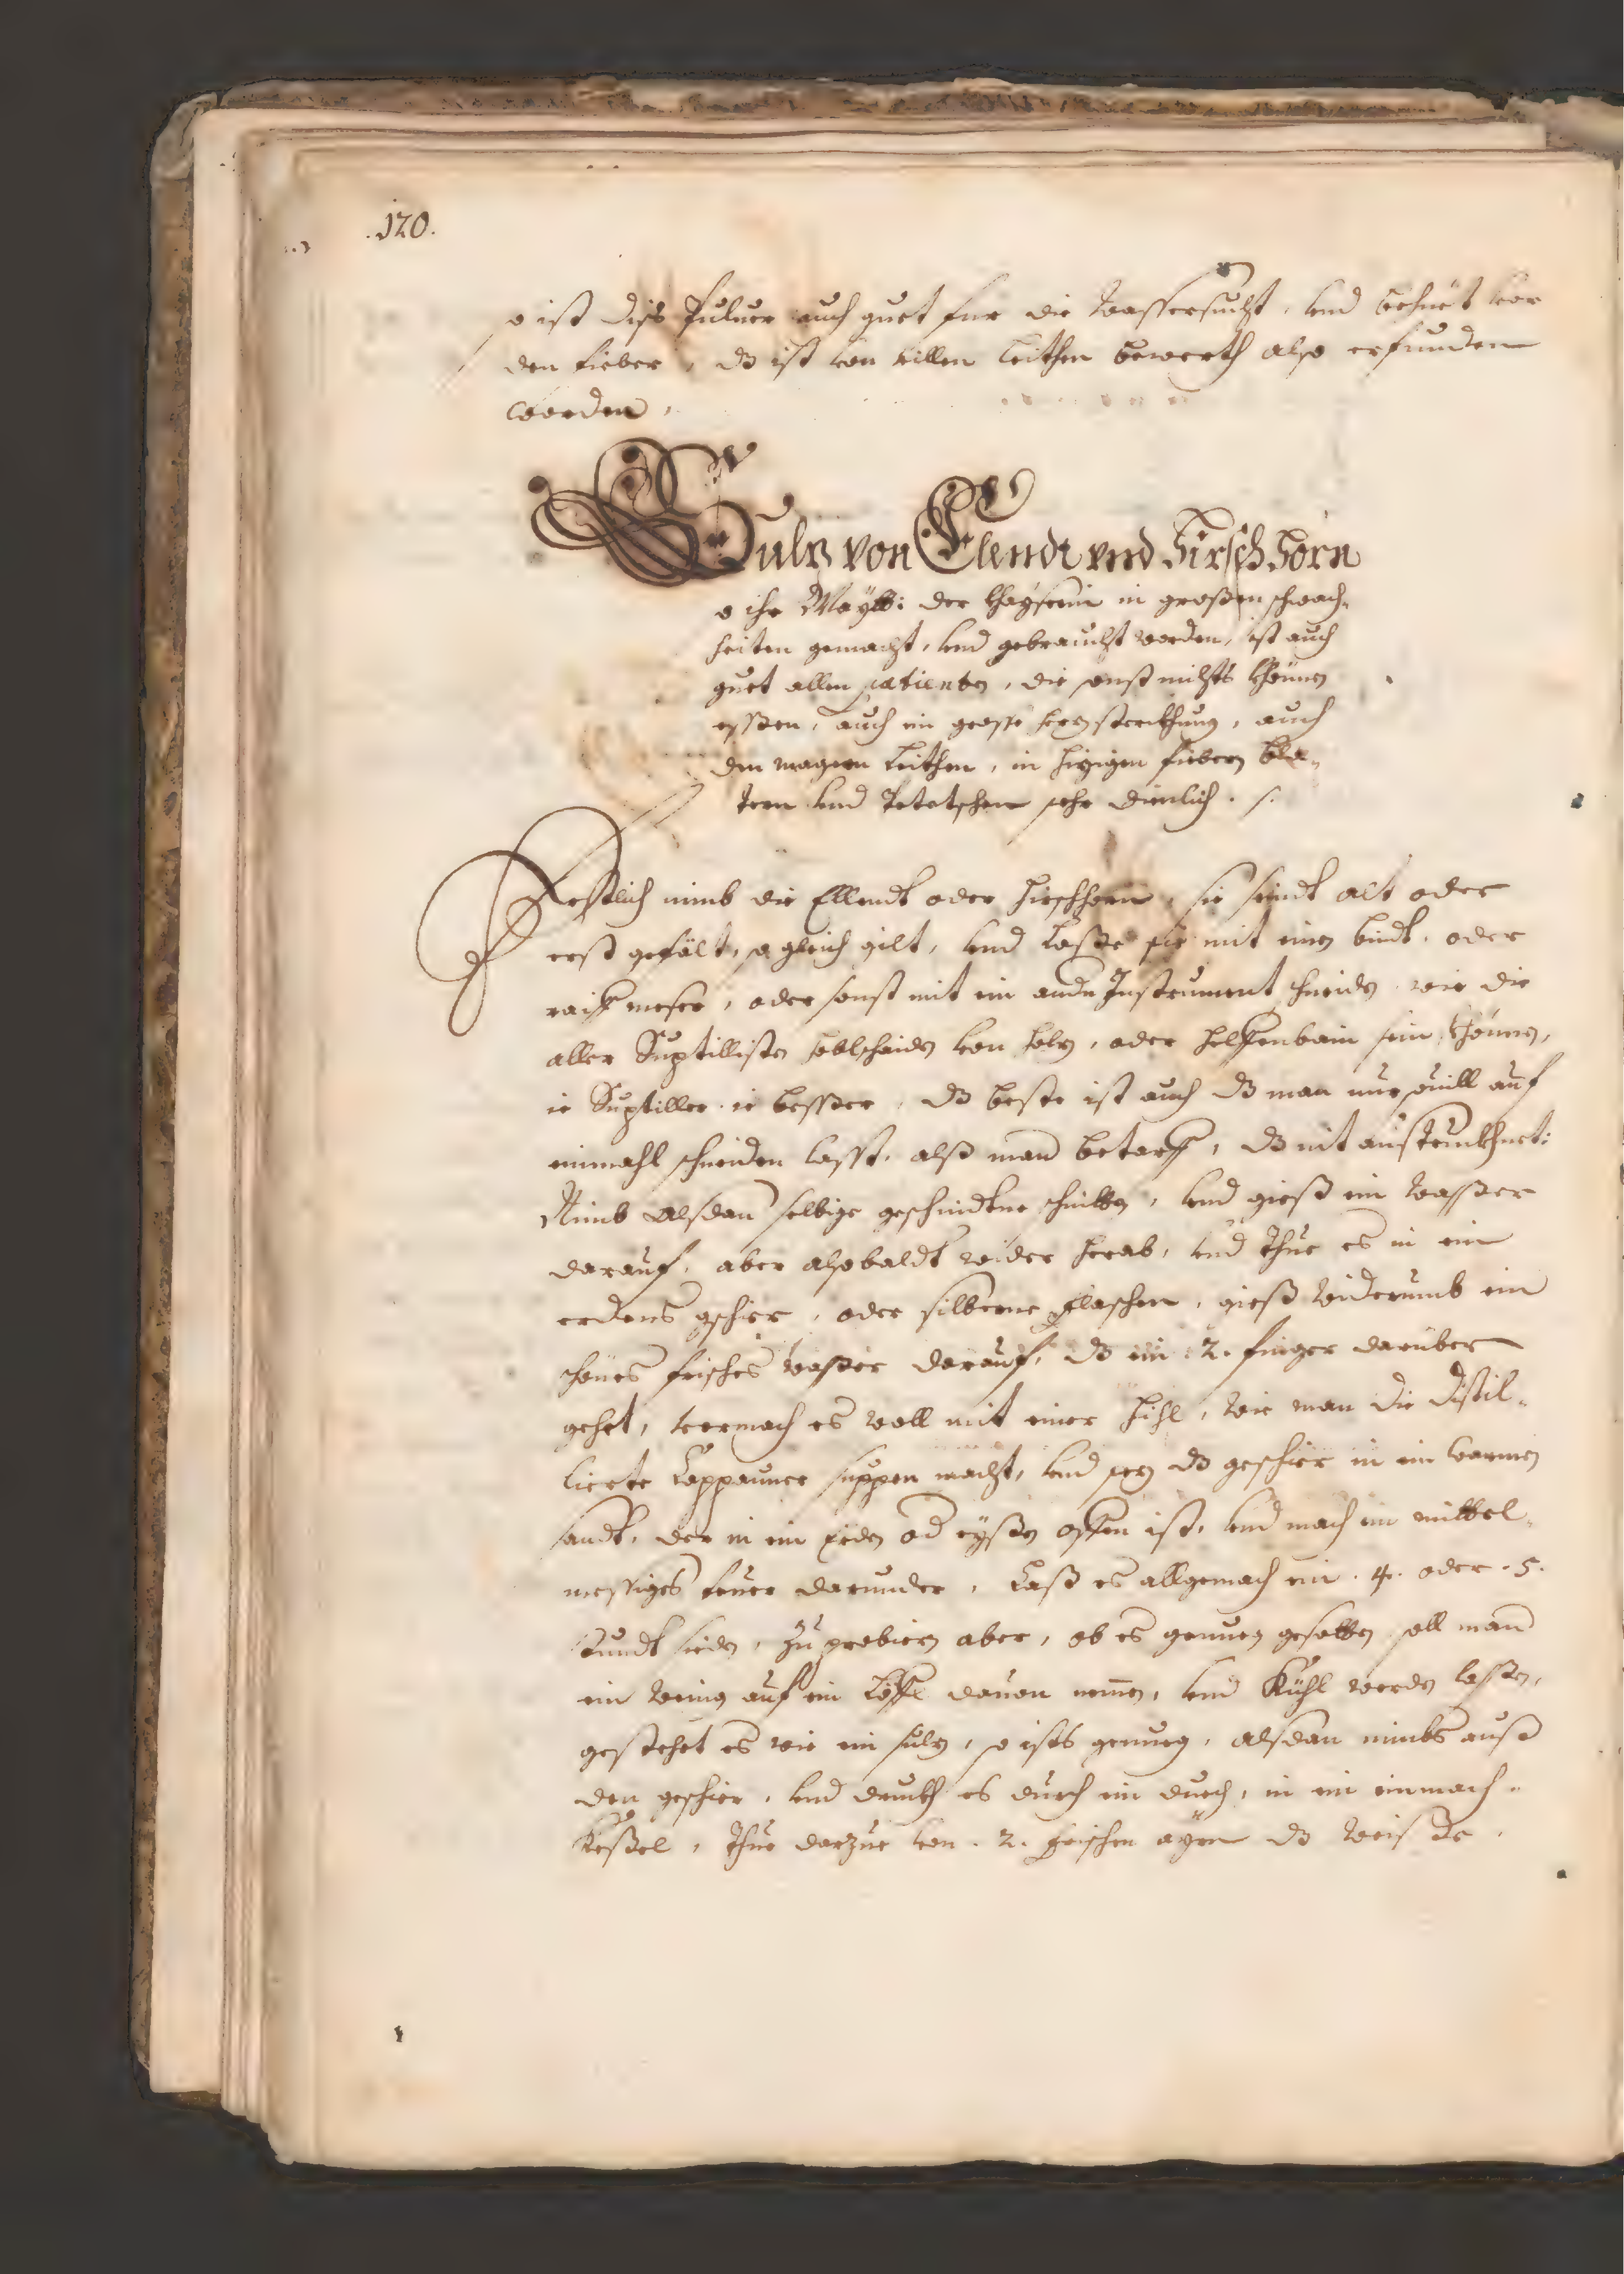 .120.
so ist diss Puluer auch guet fur die Wassersucht, vnd behuet vor
den fieber, dz ist von villen Leithen bewerth also erfunden
worden,
Sulz von Elendt vnd Hirsch Horn
so ihr Maytt: der Khayserin in großen schwach„
heiten gemacht, vnd gebraucht worden, ist auch
guet allen patienten, die sonst nichts khönnen
essßen, auch ein grosse herz sterckhung, auch
den magern Leithen, in hizigen fiebern bla„
tern vnd Petetschen sehr dienlich.
Erstlich nimb die Ellendt oder Hirschhorn, sie seindt alt oder
erst gefält, so gleich gilt, vnd Laße sie mit einen bindt. oder
raiff messer, oder sonst mit ein andern Instrument schneiden wie die
aller Suptilliste hoblschaiden von holz, oder helffenbain sein khönnen,
ie Suptiller ie bessßer, dz beste ist auch dz man nur souill auf
einmahl schneiden lasst, alß man betarff, dz nit austruckhnet:
Nimb alsdan selbige geschnidtne schnitten, vnd gieß ein waßßer
darauf, aber alsobaldt wider herab, vnd thue es in ein
erdens gschier, oder silberne flaschen, gieß widerumb ein
schönes frisches waßer darauf, dz ein .2. finger darüber
gehet, vermach es woll mit einer hihl, wie man die distil„
lierte Cappauner suppen macht, vnd sez dz geschier in ein warmen
sandt, der in ein erden od eyßen offen ist, vnd mach ein mittel„
messiges feuer darunder, Laß es allgemach ein .4. oder .5.
stundt sieden, Zu probiern aber, ob es genueg gesotten soll man
ein wenig auf ein Löffl dauon nemen, vnd Kühl werden lassen,
gestehet es wie ein sulz, so ists genueg, alsdan nimbs auß
den geschier, vnd druckh es durch ein duech, in ein einmach„
Keßel, thue darzue von .2. frischen ayrn dz weis de